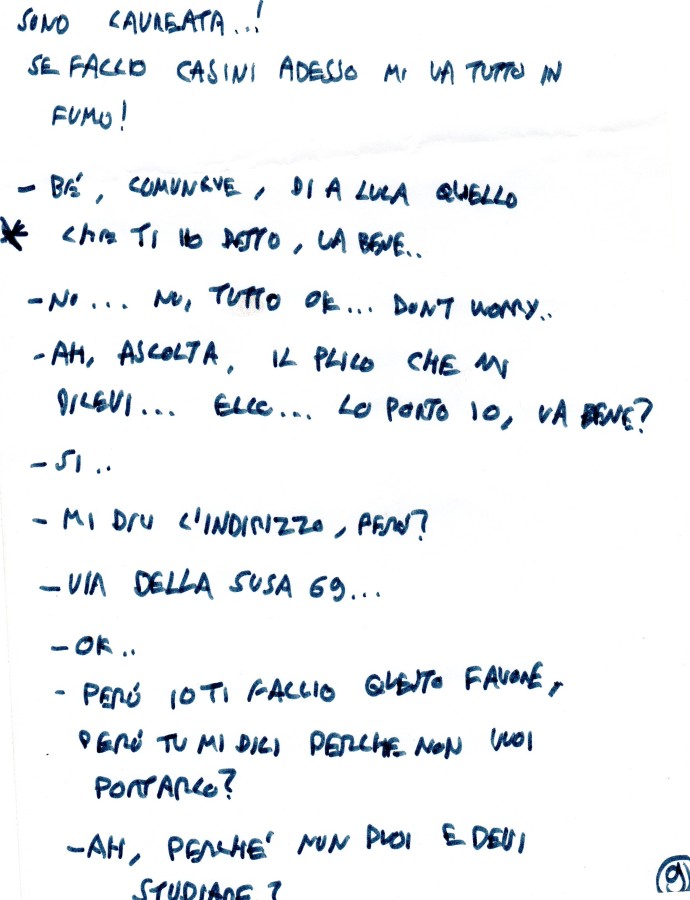 SONO LAUREATA...!
SE FACCIO CASINI ADESSO MI VA TUTTO IN
FUMO!
- BE', COMUNQUE, DI A LUCA QUELLO
CHE TI HO DETTO, VA BENE..
- NO... NO, TUTTO OK... DON'T WORRY..
- AH, ASCOLTA, IL PLICO CHE MI
DICEVI... ECCO... LO PORTO IO, VA BENE?
- SI..
- MI DICI L'INDIRIZZO, PERÒ?
- VIA DELLA SUSA 69...
- OK..
- PERÓ IO TI FACCIO QUESTO FAVORE,
PERÓ TU MI DICI PERCHE NON VUOI
PORTARLO?
- AH, PERCHE' NON PUOI E DEVI
STUDIARE?
9